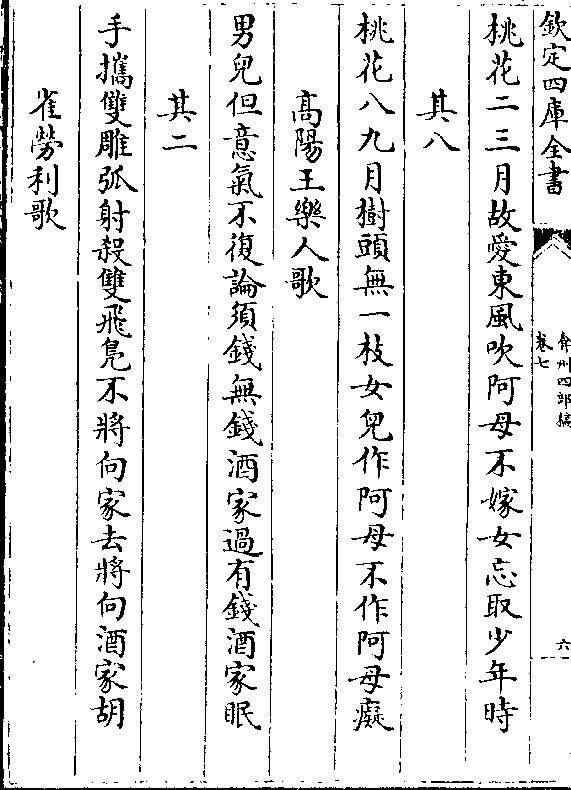 欽定四庫全書
弇州四部稿
卷七
六
桃花二三月故愛東風吹阿母不嫁女忘取少年時
其八
桃花八九月樹頭無一枝女兒作阿母不作阿母癡
高陽王樂人歌
男兒但意氣不復論須錢無錢酒家過有錢酒家眠
其二
手攜雙雕弧射殺雙飛鳧不將向家去將向酒家胡
雀勞利歌